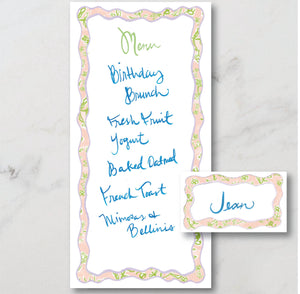 Menu
Birthday
Brunch
Fresh Fruit
Yogurt
Baked Oatmeal
French Toast
Mimosas &
Bellinis
Jean